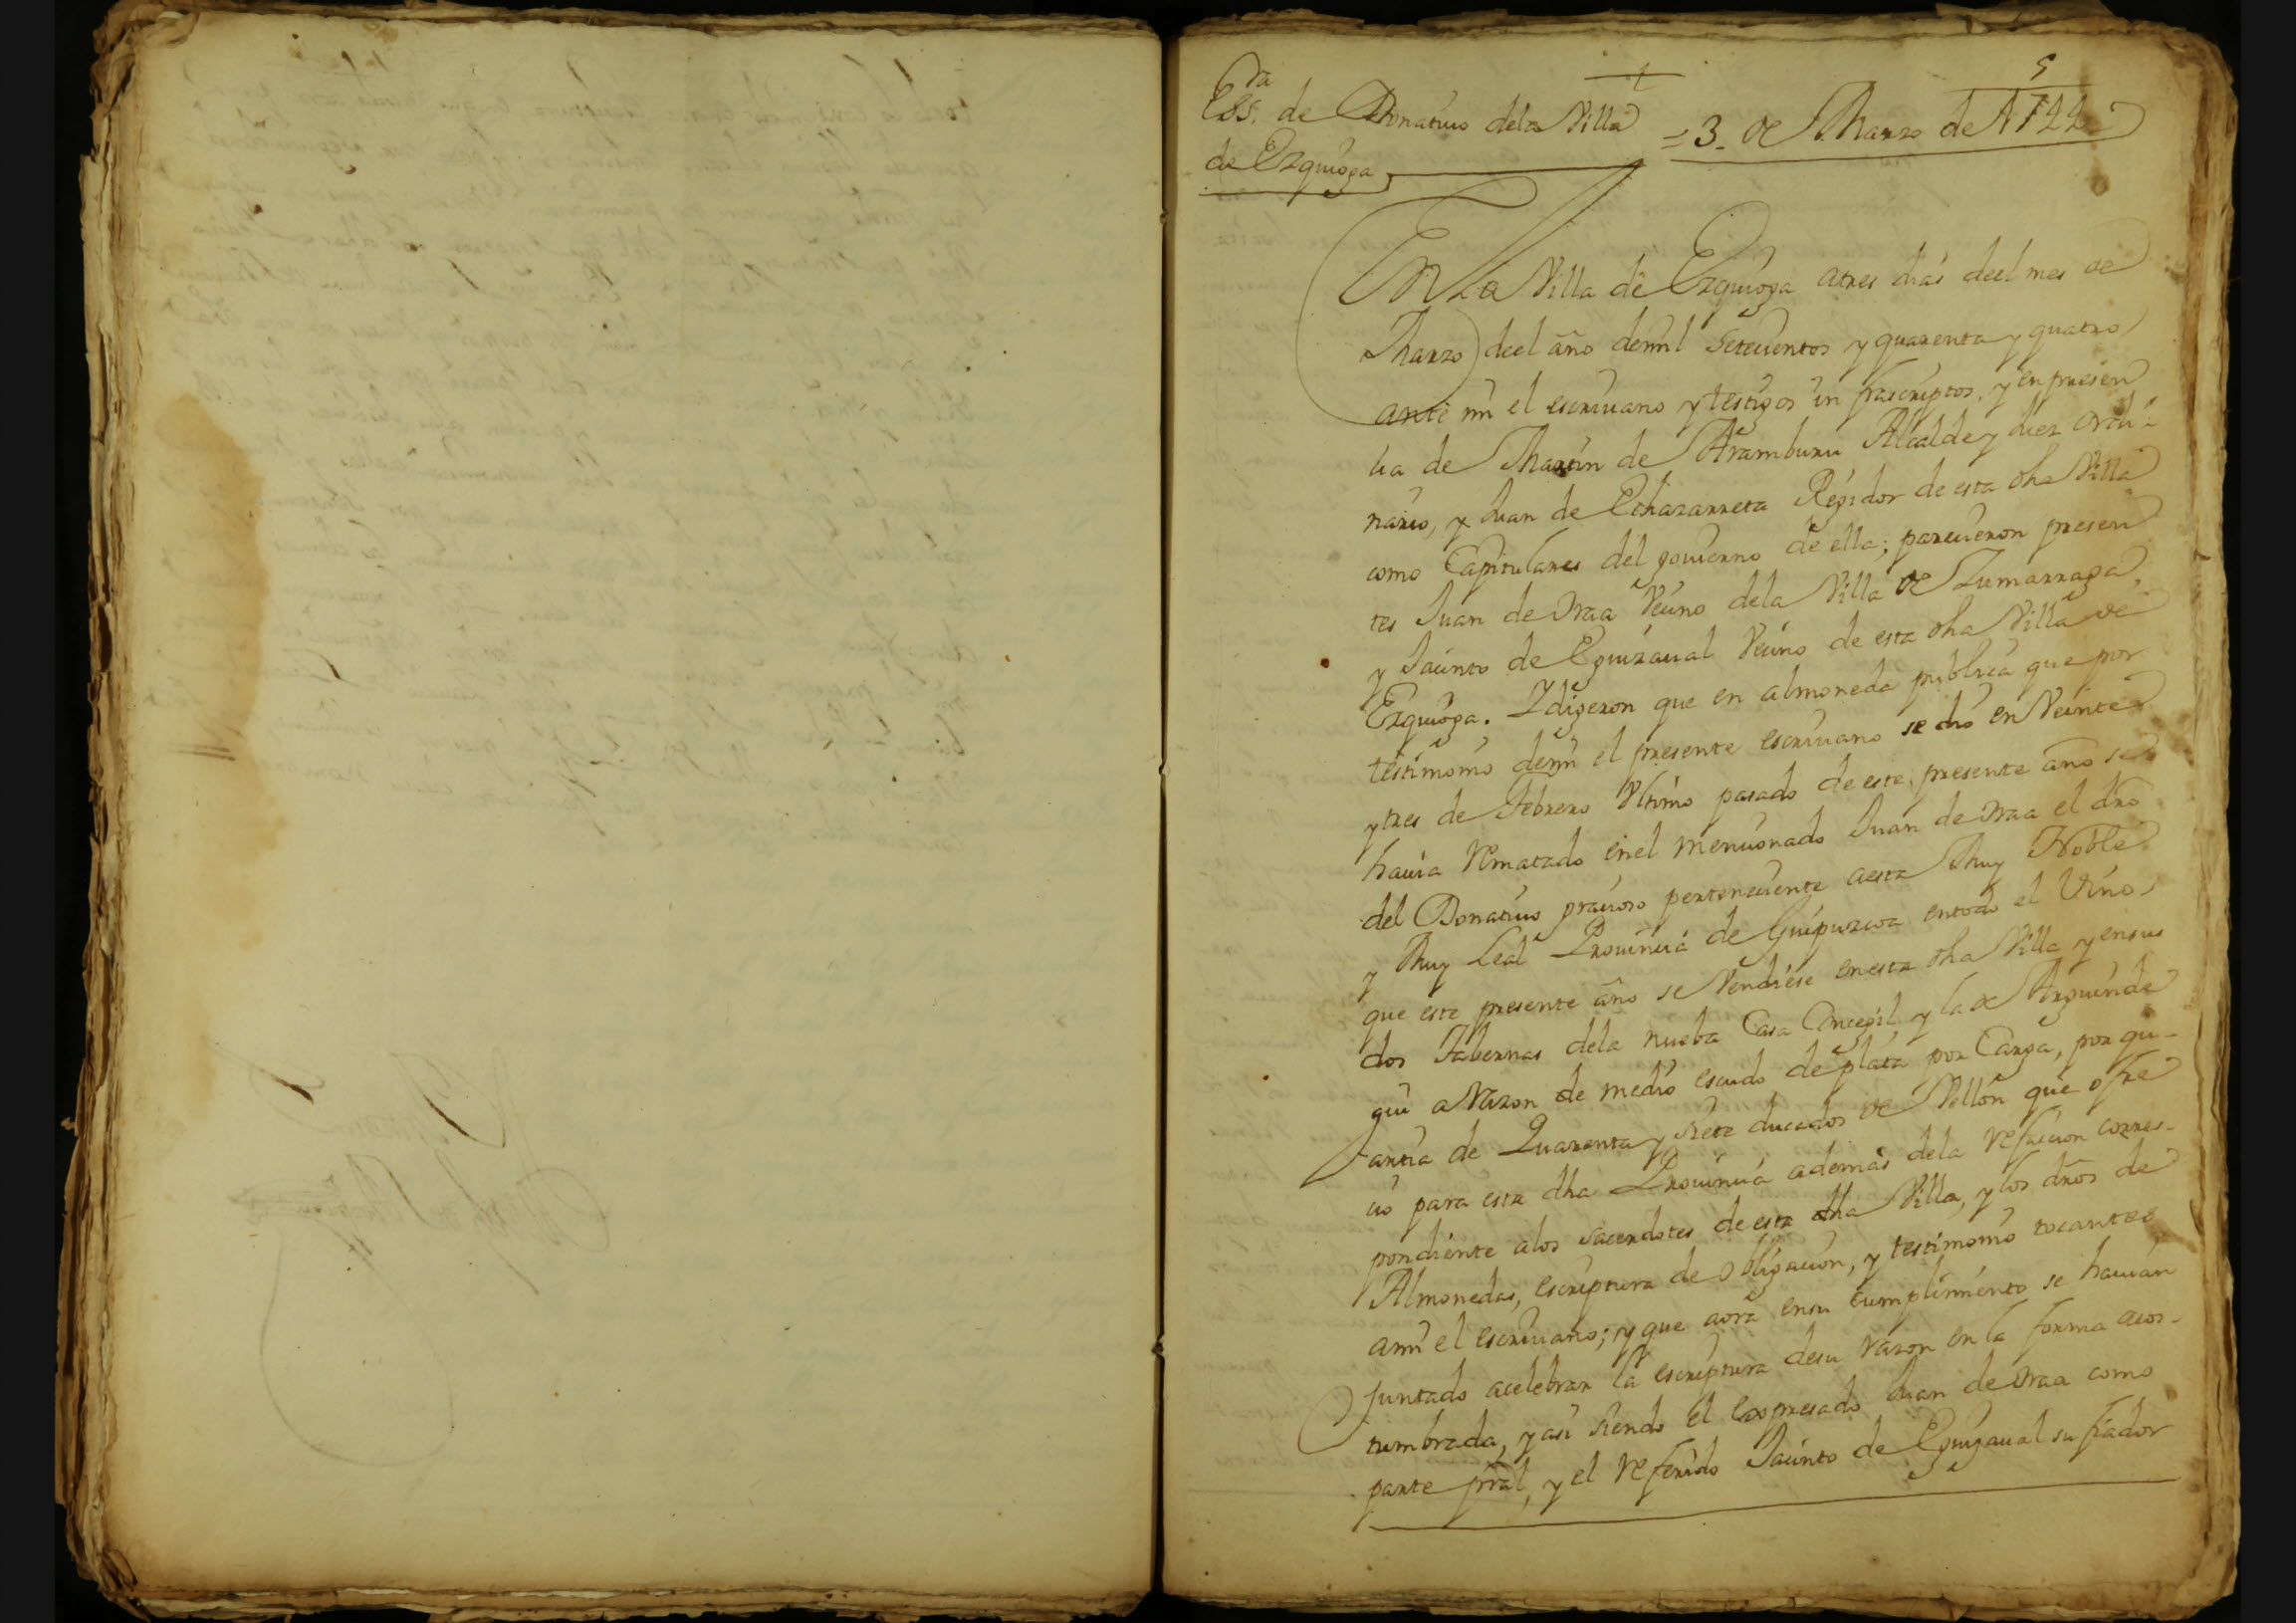 +
5
Ess.ra de Donativo dela Villa
de Ezquioga
= 3. de Marzo de 1744
En La Villa de Ezquioga atres dias deel mes de
Marzo deel año demil setecientos y quarenta y quatro
ante mi el escriuano y testigos infrascriptos, y en presen
cia de Martin de Aramburu Alcalde y Juez ordi-
nario, y Juan de Echazarreta Regidor de esta dha Villa
como Capitulares del gouierno de ella; parecieron presen
tes Juan de Oraa Vecino dela Villa de Zumarraga,
y Jacinto de Eguizaual Vecino de esta dha Villa de
Ezquioga. Y digeron que en almoneda publica que por
testimonio demi el presente escriuano se dio en Veinte
y tres de Febrero Ultimo pasado de este presente año se
hauia Rematado enel mencionado Juan de Oraa el dro
del Donatiuo gracioso perteneciente aesta Muy Noble
y Muy Leal Prouincia de Guipuzcoa entodo el Vino
que este presente año se Vendiese enesta dha Villa y ensus
dos Tabernas dela nueba Casa Concegil, y la de Arguinde
gui a Razon de medio escudo de plata por Carga, por qu-
antia de Quarenta y siete ducados de Vellon que ofre
cio para esta dha Prouincia ademas dela Refaccion corres-
pondiente alos sacerdotes de esta dha Villa, y los dros de
Almonedas, escriptura de obligacion, y testimonio tocantes
ami el escriuano; y que aora ensu cumplimiento se hauian
Juntado acelebrar la escriptura desu razon en la forma acos-
tumbrada, y asi siendo el expresado Juan de Oraa como
parte prål, y el Referido Jacinto de Eguizaual su fiador